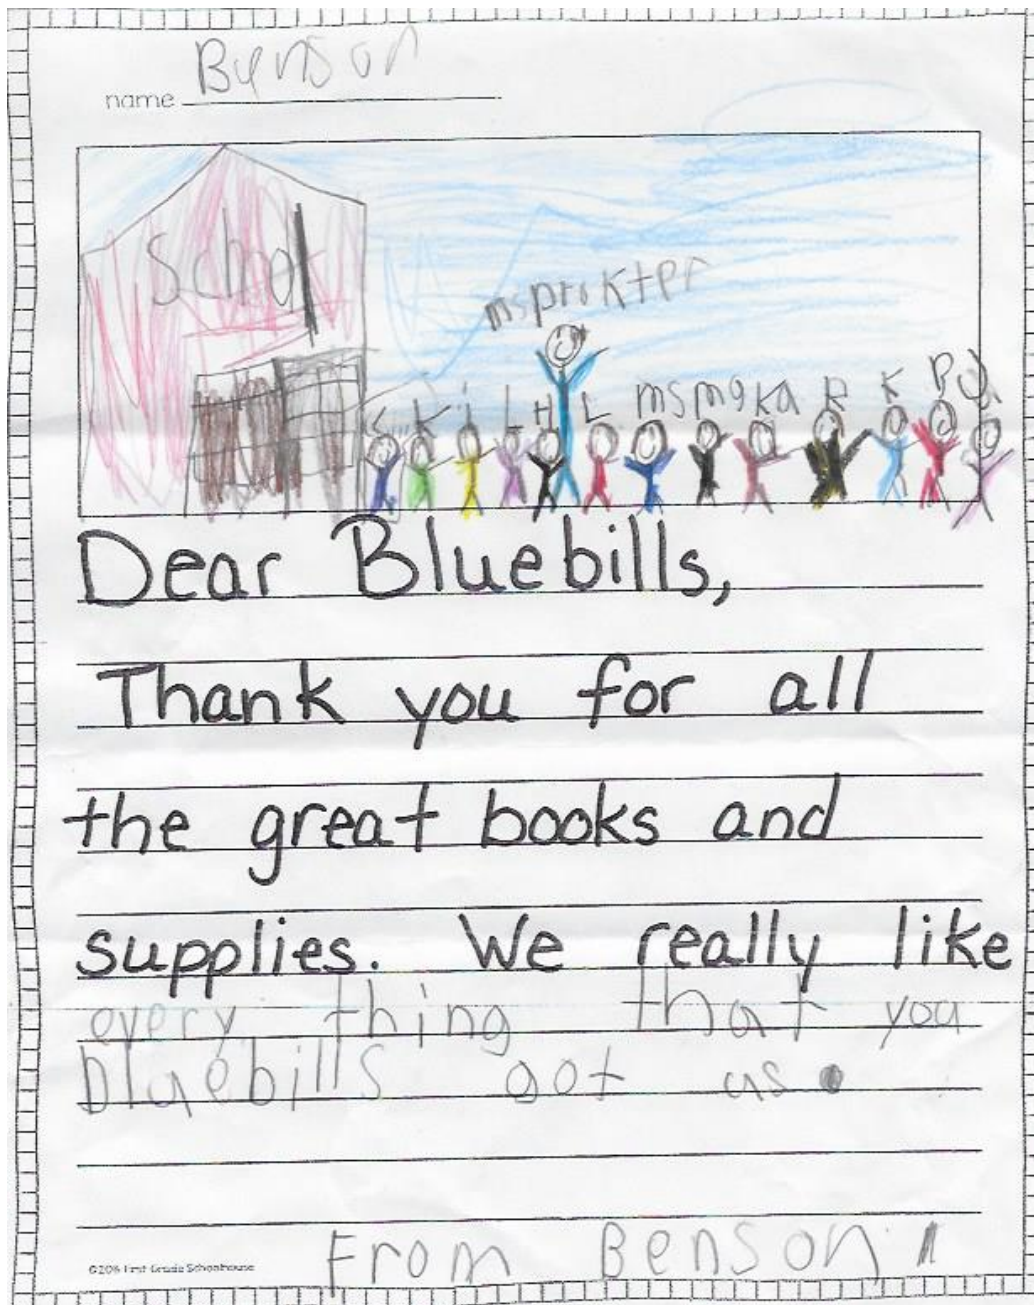 name Benson
School
msprokter
L K i L H L msmgka R K B
Dear Bluebills,
Thank you for all
the great books and
supplies. We really like
every thing that you
bluebills got us.
From Benson
©2016 First Grade Schoolhouse